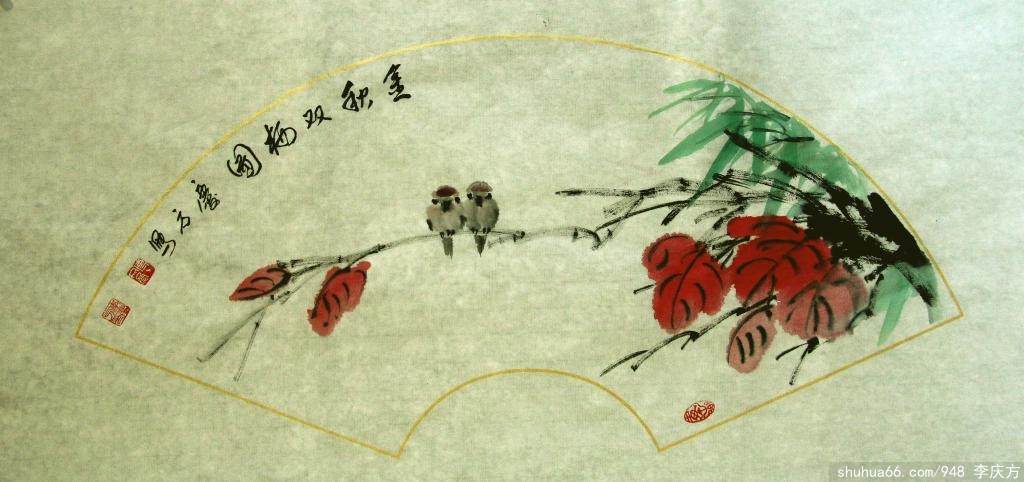 金秋双栖图
慶方写
shuhua66.com/948 李庆方